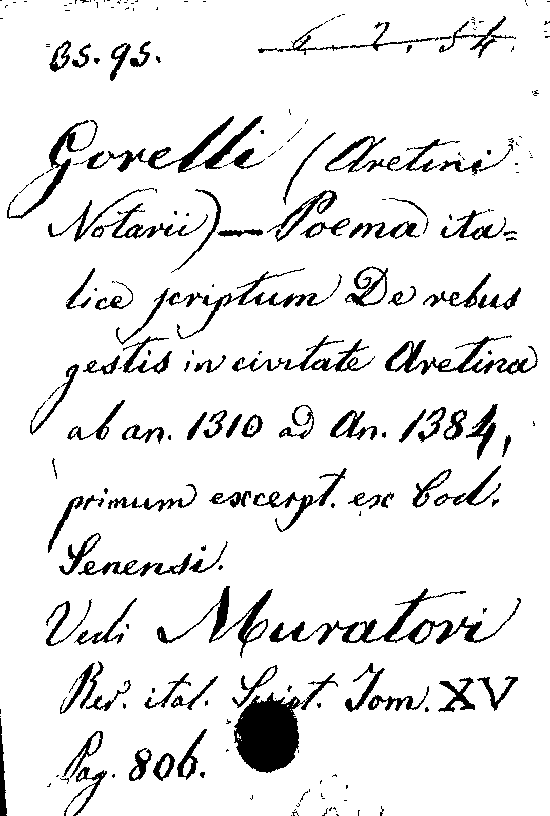 BS. 95. 6 7. 54.
Gorelli (Aretini
Notarii) — Poema ita=
lice scriptum De rebus
gestis in civitate Aretina
ab an. 1310 ad An. 1384,
primum excerpt. ex Cod.
Senensi.
Vedi Muratori
Rer. ital. Script. Tom. XV
Pag. 806.